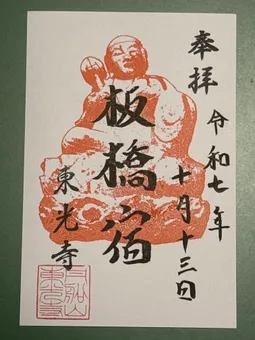 奉拝
令和七年
十月十三日
板橋宿
東光寺